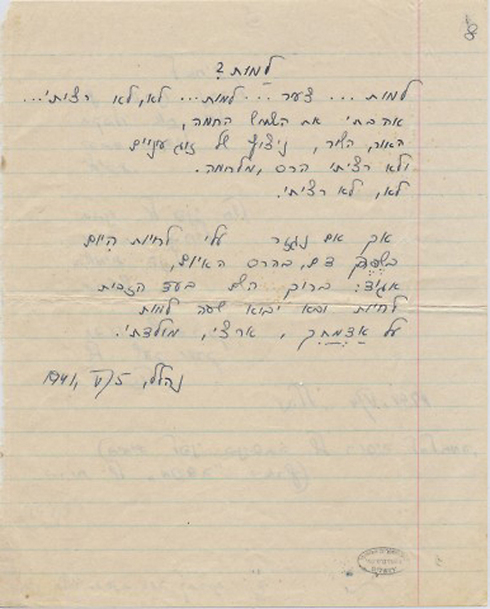 8
למות?
למות... צעיר... למות... לא, לא רציתי...
אהבתי את השמש החמה,
האור, השיר, ניצוץ של זוג עיניים
ולא רציתי הרס, מלחמה.
לא, לא רציתי.
אך אם נגזר עלי לחיות היום
בשפך דם, בהרס האיום,
אגיד: ברוך השם בעד הזכות
לחיות ובא יבוא שעה למות
על אדמתך, ארצי, מולדתי.
נהלל, 5/V 1941,